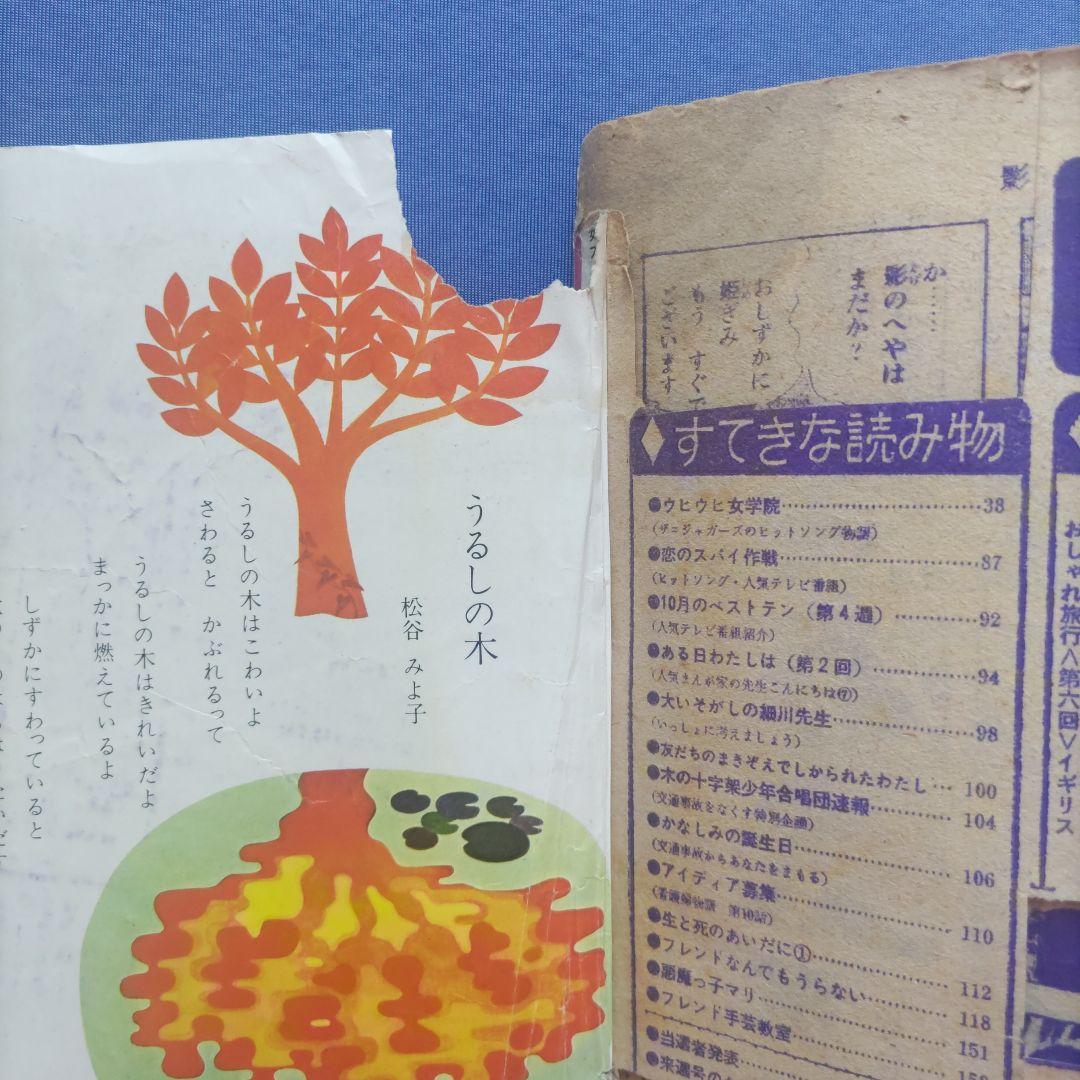 うるしの木
松谷 みよ子
うるしの木はこわいよ
さわると かぶれるって
うるしの木はきれいだよ
まっかに燃えているよ
しずかにすわっていると
影
か……
影のへやは
まだか?
おしずかに
姫ぎみ
もう すぐで
ございます
すてきな読み物
●ウヒウヒ女学院……38
(ザ=ジャガーズのヒットソング物語)
●恋のスパイ作戦……87
(ヒットソング・人気テレビ番組)
●10月のベストテン(第4週)……92
(人気テレビ番組紹介)
●ある日わたしは(第2回)……94
(人気まんが家の先生こんにちは⑦)
●大いそがしの細川先生……98
(いっしょに考えましょう)
●友だちのまきぞえでしかられたわたし…100
●木の十字架少年合唱団速報……104
(交通事故をなくす特別企画)
●かなしみの誕生日……106
(交通事故からあなたをまもる)
●アイディア募集……110
(看護婦物語 第10話)
●生と死のあいだに①……112
●フレンドなんでもうらない……118
●悪魔っ子マリ……151
●フレンド手芸教室
●当選者発表
●来週号の
おしゃれ旅行<第六回>イギリス